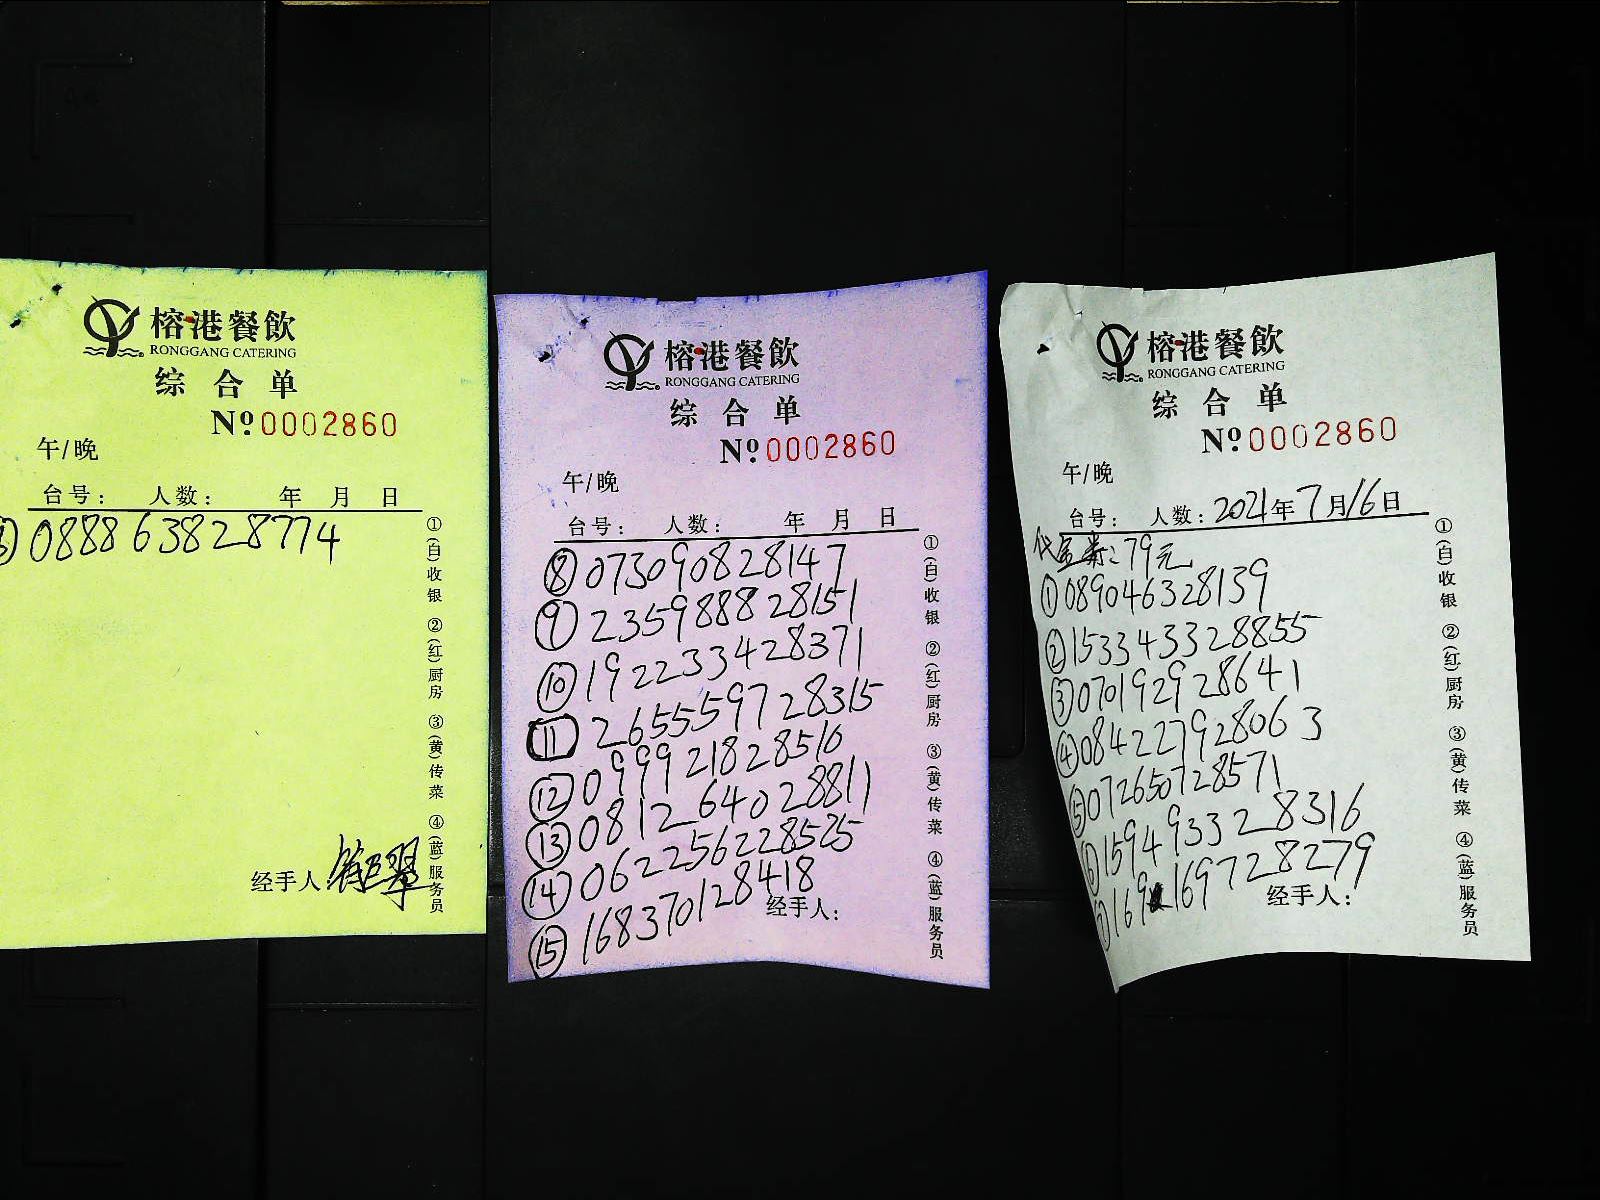 榕港餐飲
RONGGANG CATERING
综合单
Nº0002860
午/晚
台号: 人数: 年 月 日
088863828774
经手人:
①(白)收银 ②(红)厨房 ③(黄)传菜 ④(蓝)服务员
榕港餐飲
RONGGANG CATERING
综合单
Nº0002860
午/晚
台号: 人数: 年 月 日
⑧073090828147
⑨235988828151
⑩192233428371
11 265559728315
⑫099921828516
⑬081264028811
⑭062256228525
⑮168370128418
经手人:
①(白)收银 ②(红)厨房 ③(黄)传菜 ④(蓝)服务员
榕港餐飲
RONGGANG CATERING
综合单
Nº0002860
午/晚
台号: 人数: 2021年7月16日
代金券:79元
①089046328139
②153343328855
③070192928641
④084227928063
⑤072650728571
⑥159493328316
169169728279
经手人:
①(白)收银 ②(红)厨房 ③(黄)传菜 ④(蓝)服务员